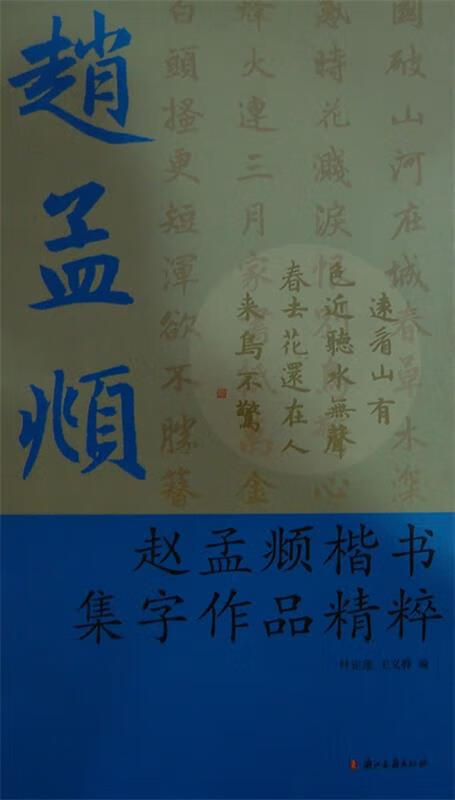 趙孟頫
國破山河在城春草木深
感時花濺淚恨別鳥驚心
烽火連三月家書抵萬金
白頭搔更短渾欲不勝簪
遠看山有
色近聽水無聲
春去花還在人
來鳥不驚
赵孟𫖯楷书
集字作品精粹
编
浙江古籍出版社